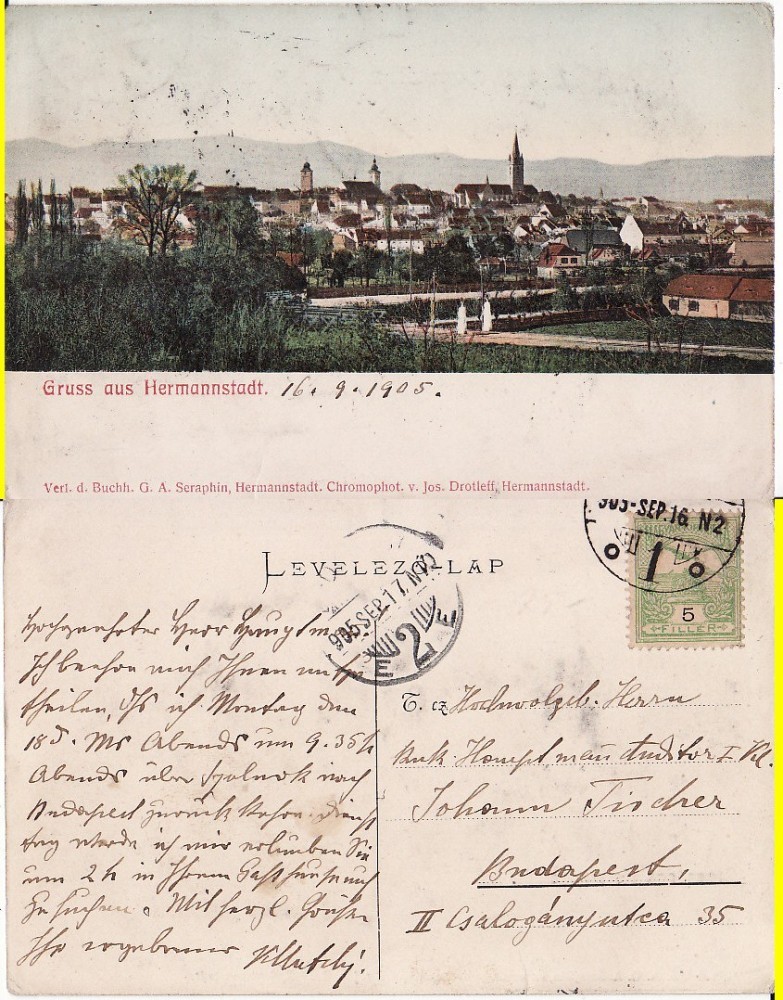 Gruss aus Hermannstadt. 16. 9. 1905.
Verl. d. Buchh. G. A. Seraphin, Hermannstadt. Chromophot. v. Jos. Drotleff, Hermannstadt.
905-SEP.16. N2
1
LEVELEZ -LAP
905 SEP.17.N10
2
E E
5
FILLER
Hochgeehrter Herr Hauptm
Ich beehre mich Ihnen mitzu
theilen, daß ich Montag den
18d. Ms Abends um 9.35h
Abends über Szolnok nach
Budapest zurück kehre. Diens
tag werde ich mir erlauben Sie
um 2h in Ihrem Gasthause auf
zusuchen. Mit herzl. Grüßen
Ihr ergebener
T. cz Hochwolgeb. Herrn
kuk. Hauptmann Auditor I Kl.
Johann Fischer
Budapest,
II Csalogányutca 35